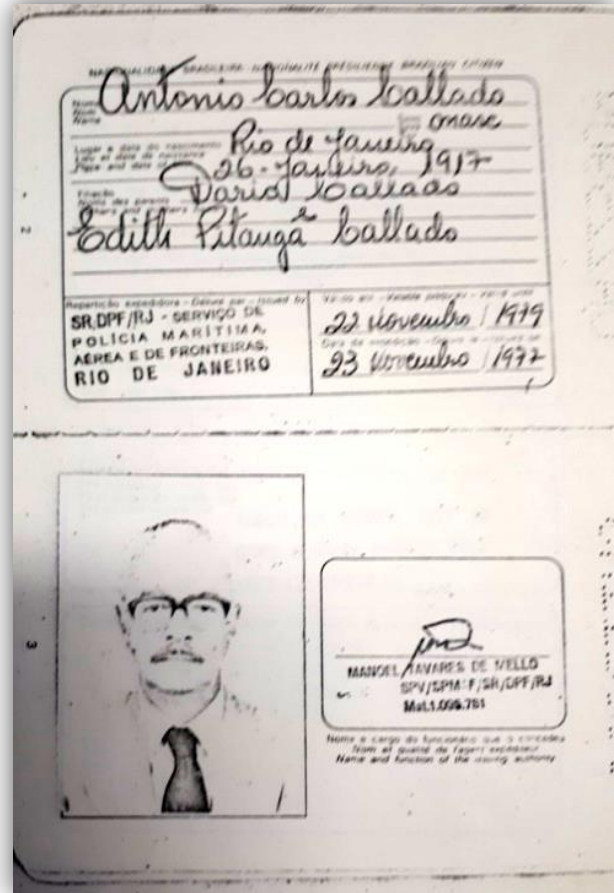 NACIONALIDADE BRASILEIRA - NATIONALITÉ BRÉSILIENNE - BRAZILIAN CITIZEN
Nome
Nom
Name
Antonio Carlos Callado
masc
Lugar e data do nascimento
Lieu et date de naissance
Place and date of
Rio de Janeiro
26-Janeiro, 1917
Filiação
Dario Callado
e
Edith Pitanga Callado
2
Repartição expedidora - Délivré par - Issued by
SR,DPF/RJ - SERVIÇO DE
POLÍCIA MARÍTIMA,
AÉREA E DE FRONTEIRAS,
RIO DE JANEIRO
22 Novembro / 1979
23 Novembro / 1977
3
MANOEL TAVARES DE MELLO
SPV/SPMAF/SR/DPF/RJ
Mat.1.096.781
Nome e cargo do funcionário que o concedeu
Nom et qualité de l'agent expéditeur
Name and function of the issuing authority